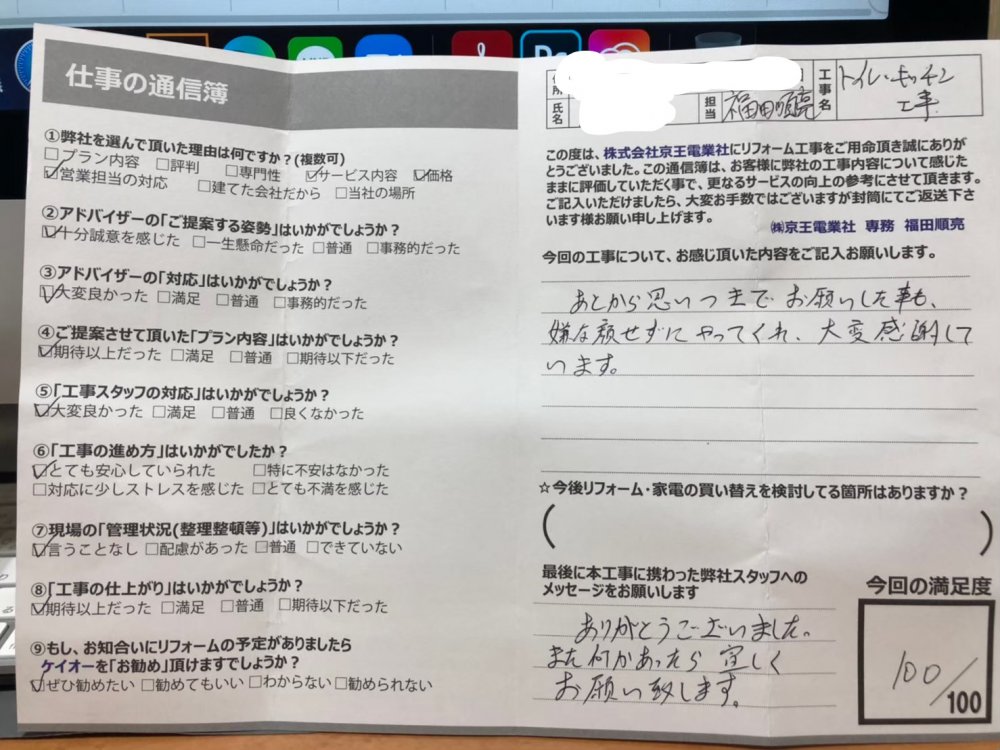 仕事の通信簿
①弊社を選んで頂いた理由は何ですか?(複数可)
□プラン内容 □評判 □専門性 ☑サービス内容 ☑価格
☑営業担当の対応 □建てた会社だから □当社の場所
②アドバイザーの「ご提案する姿勢」はいかがでしょうか?
☑十分誠意を感じた □一生懸命だった □普通 □事務的だった
③アドバイザーの「対応」はいかがでしょうか?
☑大変良かった □満足 □普通 □事務的だった
④ご提案させて頂いた「プラン内容」はいかがでしょうか?
☑期待以上だった □満足 □普通 □期待以下だった
⑤「工事スタッフの対応」はいかがでしょうか?
☑大変良かった □満足 □普通 □良くなかった
⑥「工事の進め方」はいかがでしたか?
☑とても安心していられた □特に不安はなかった
□対応に少しストレスを感じた □とても不満を感じた
⑦現場の「管理状況(整理整頓等)」はいかがでしょうか?
☑言うことなし □配慮があった □普通 □できていない
⑧「工事の仕上がり」はいかがでしょうか?
☑期待以上だった □満足 □普通 □期待以下だった
⑨もし、お知合いにリフォームの予定がありましたら
ケイオーを「お勧め」頂けますでしょうか?
☑ぜひ勧めたい □勧めてもいい □わからない □勧められない
住所
氏名
担当 福田順亮
工事名 トイレ・キッチン
工事
この度は、株式会社京王電業社にリフォーム工事をご用命頂き誠にありが
とうございました。この通信簿は、お客様に弊社の工事内容について感じた
ままに評価していただく事で、更なるサービスの向上の参考にさせて頂きます。
ご記入いただけましたら、大変お手数ではございますが封筒にてご返送下さ
います様お願い申し上げます。
㈱京王電業社 専務 福田順亮
今回の工事について、お感じ頂いた内容をご記入お願いします。
あとから思いつきで お願いした事も、
嫌な顔せずに やってくれ、大変感謝して
います。
☆今後リフォーム・家電の買い替えを検討してる箇所はありますか?
( )
最後に本工事に携わった弊社スタッフへの
メッセージをお願いします
ありがとうございました。
また何かあったら 宜しく
お願い致します。
今回の満足度
100/100